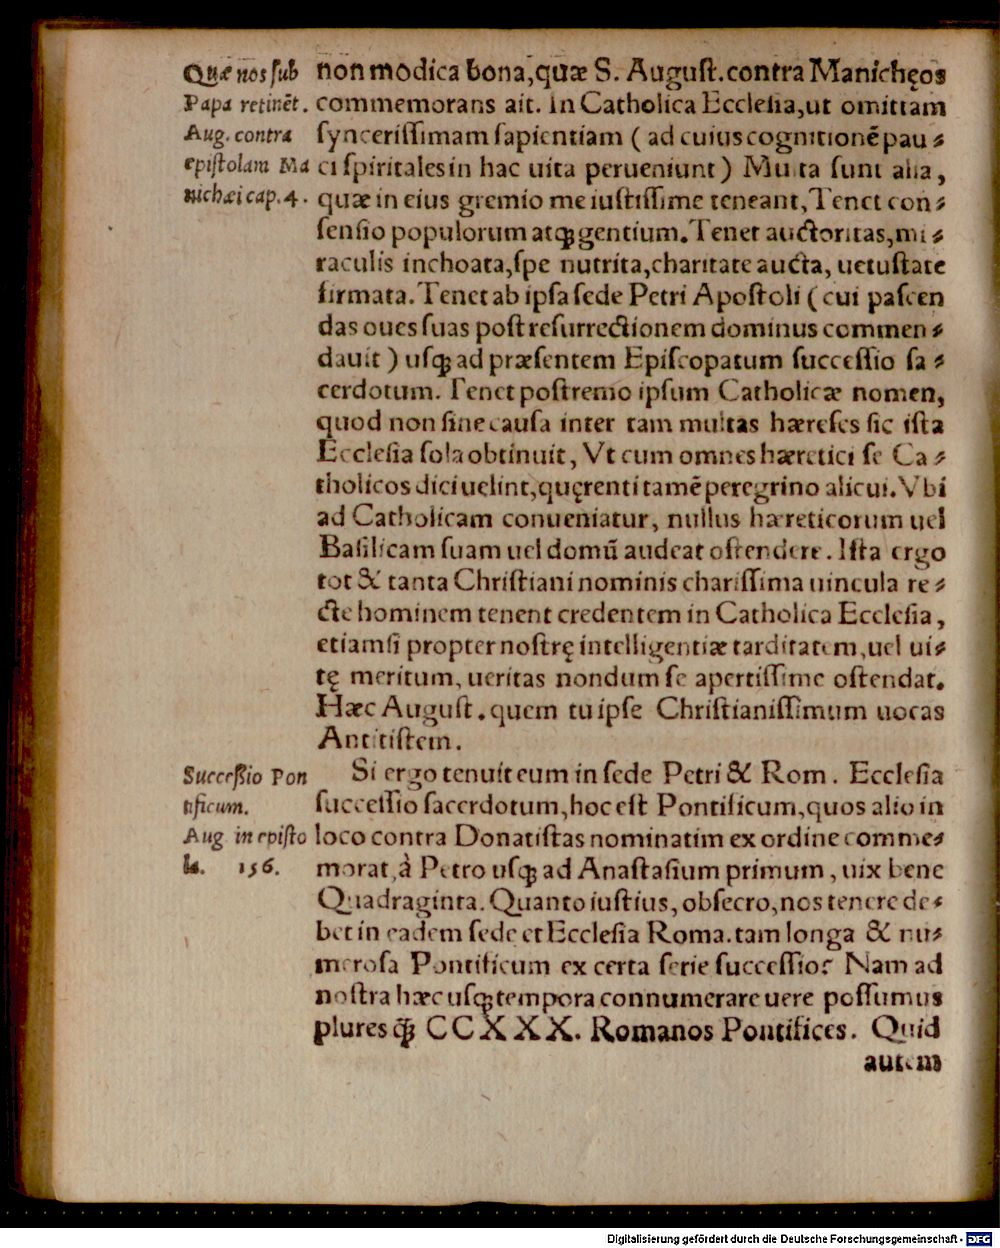 Quæ nos sub
Papa retinēt.
Aug. contra
epistolam Ma
nichæi cap. 4.
non modica bona, quæ S. August. contra Manichęos
commemorans ait. In Catholica Ecclesia, ut omittam
syncerissimam sapientiam ( ad cuius cognitionē pau⸗
ci spiritales in hac uita perueniunt ) Multa sunt alia,
quæ in eius gremio me iustissime teneant, Tenet con⸗
sensio populorum atq́; gentium. Tenet auctoritas, mi⸗
raculis inchoata, spe nutrita, charitate aucta, uetustate
firmata. Tenet ab ipsa sede Petri Apostoli ( cui pascen
das oues suas post resurrectionem dominus commen⸗
dauit ) usq́; ad præsentem Episcopatum successio sa⸗
cerdotum. Tenet postremo ipsum Catholicæ nomen,
quod non sine causa inter tam multas hæreses sic ista
Ecclesia sola obtinuit, Vt cum omnes hæretici se Ca⸗
tholicos dici uelint, quęrenti tamē peregrino alicui. Vbi
ad Catholicam conueniatur, nullus hæreticorum uel
Basilicam suam uel domū audeat ostendere. Ista ergo
tot & tanta Christiani nominis charissima uincula re⸗
cte hominem tenent credentem in Catholica Ecclesia,
etiamsi propter nostrę intelligentiæ tarditatem, uel ui⸗
tę meritum, ueritas nondum se apertissime ostendat.
Hæc August. quem tu ipse Christianissimum uocas
Antitistem.
Successio Pon
tificum.
Aug in episto
la. 156.
Si ergo tenuit eum in sede Petri & Rom. Ecclesia
successio sacerdotum, hoc est Pontificum, quos alio in
loco contra Donatistas nominatim ex ordine comme⸗
morat, à Petro usq́; ad Anastasium primum, uix bene
Quadraginta. Quanto iustius, obsecro, nos tenere de⸗
bet in eadem sede et Ecclesia Roma. tam longa & nu⸗
merosa Pontificum ex certa serie successio? Nam ad
nostra hæc usq́; tempora connumerare uere possumus
plures q̄; CCXXX. Romanos Pontifices. Quid
autem
Digitalisierung gefördert durch die Deutsche Forschungsgemeinschaft - DFG